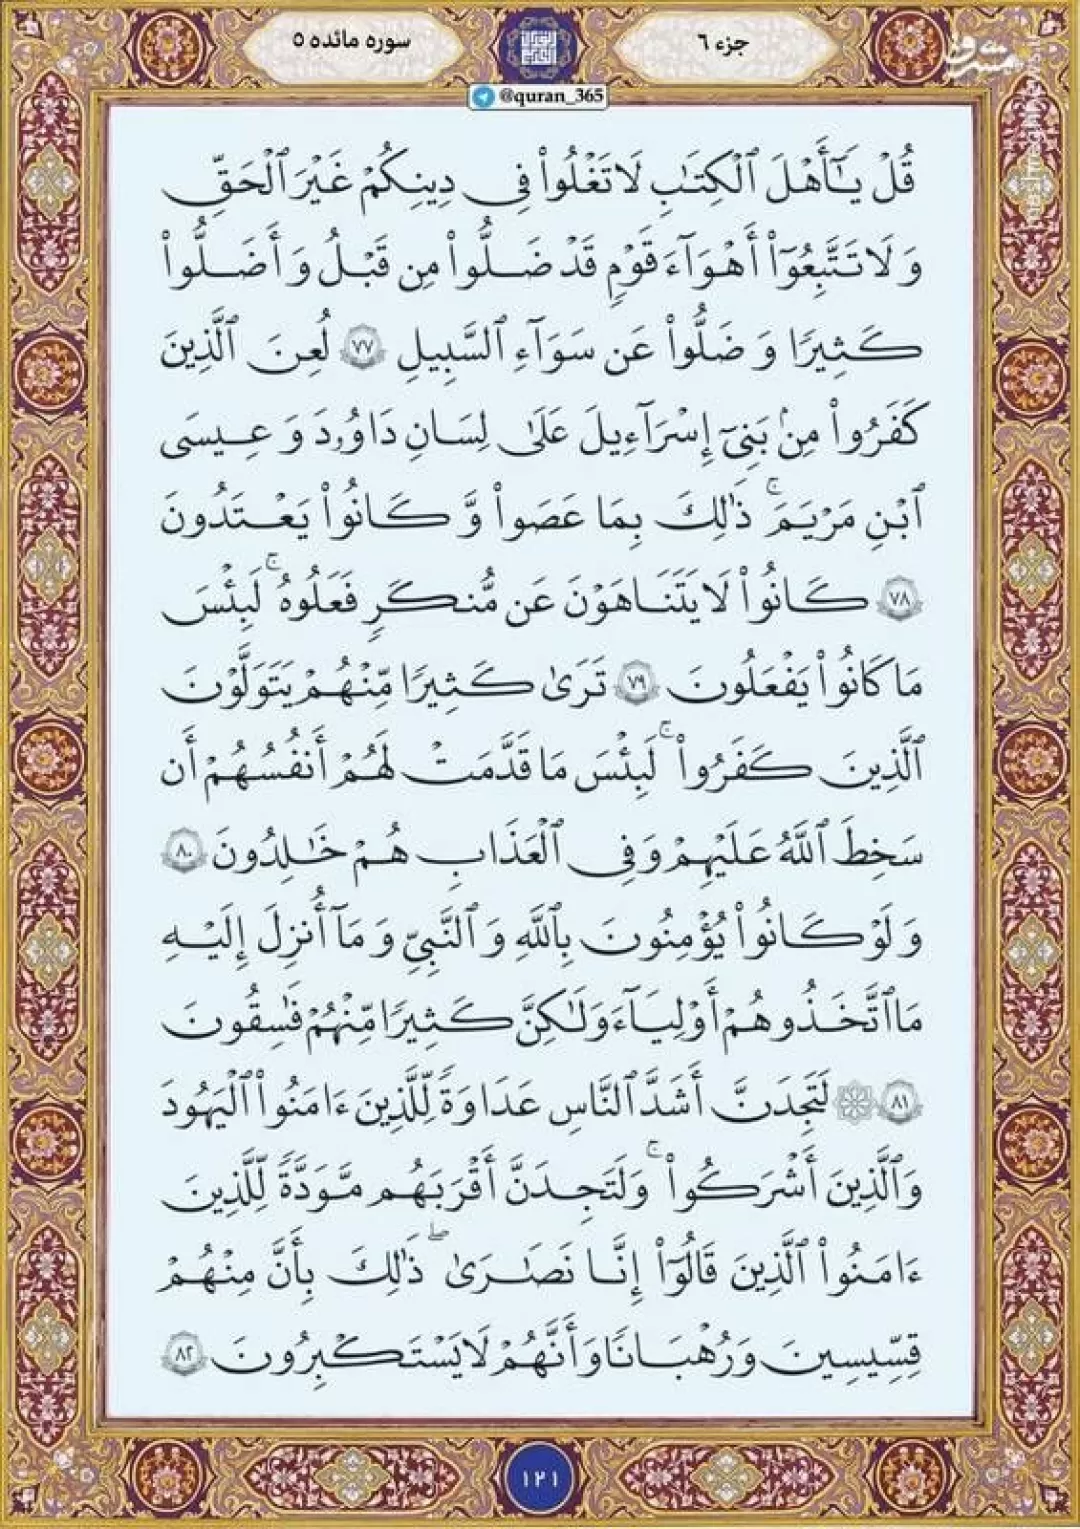 جزء ۶
سوره مائده ۵
@quran_365
مشرق
mashreghnews.ir
قُلْ يَٰٓأَهْلَ ٱلْكِتَٰبِ لَا تَغْلُوا۟ فِى دِينِكُمْ غَيْرَ ٱلْحَقِّ
وَلَا تَتَّبِعُوٓا۟ أَهْوَآءَ قَوْمٍ قَدْ ضَلُّوا۟ مِن قَبْلُ وَأَضَلُّوا۟
كَثِيرًا وَضَلُّوا۟ عَن سَوَآءِ ٱلسَّبِيلِ ۷۷ لُعِنَ ٱلَّذِينَ
كَفَرُوا۟ مِنۢ بَنِىٓ إِسْرَٰٓءِيلَ عَلَىٰ لِسَانِ دَاوُۥدَ وَعِيسَى
ٱبْنِ مَرْيَمَ ۚ ذَٰلِكَ بِمَا عَصَوا۟ وَّكَانُوا۟ يَعْتَدُونَ
۷۸ كَانُوا۟ لَا يَتَنَاهَوْنَ عَن مُّنكَرٍ فَعَلُوهُ ۚ لَبِئْسَ
مَا كَانُوا۟ يَفْعَلُونَ ۷۹ تَرَىٰ كَثِيرًا مِّنْهُمْ يَتَوَلَّوْنَ
ٱلَّذِينَ كَفَرُوا۟ ۚ لَبِئْسَ مَا قَدَّمَتْ لَهُمْ أَنفُسُهُمْ أَن
سَخِطَ ٱللَّهُ عَلَيْهِمْ وَفِى ٱلْعَذَابِ هُمْ خَٰلِدُونَ ۸۰
وَلَوْ كَانُوا۟ يُؤْمِنُونَ بِٱللَّهِ وَٱلنَّبِىِّ وَمَآ أُنزِلَ إِلَيْهِ
مَا ٱتَّخَذُوهُمْ أَوْلِيَآءَ وَلَٰكِنَّ كَثِيرًا مِّنْهُمْ فَٰسِقُونَ
۸۱ ۞ لَتَجِدَنَّ أَشَدَّ ٱلنَّاسِ عَدَاوَةً لِّلَّذِينَ ءَامَنُوا۟ ٱلْيَهُودَ
وَٱلَّذِينَ أَشْرَكُوا۟ ۚ وَلَتَجِدَنَّ أَقْرَبَهُم مَّوَدَّةً لِّلَّذِينَ
ءَامَنُوا۟ ٱلَّذِينَ قَالُوٓا۟ إِنَّا نَصَٰرَىٰ ۖ ذَٰلِكَ بِأَنَّ مِنْهُمْ
قِسِّيسِينَ وَرُهْبَانًا وَأَنَّهُمْ لَا يَسْتَكْبِرُونَ ۸۲
۱۲۱